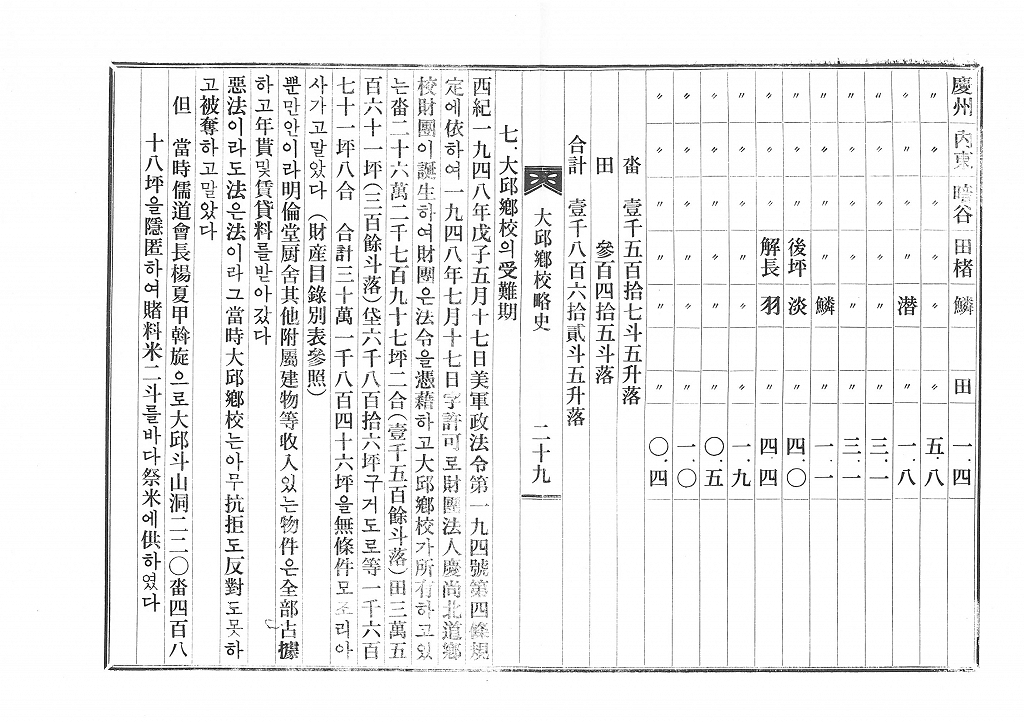 慶州 內東 暗谷 田楮 鱗 田 一.四
〃 〃 〃 〃 〃 〃 五.八
〃 〃 〃 〃 潛 〃 一.八
〃 〃 〃 〃 〃 〃 三.一
〃 〃 〃 〃 〃 〃 三.一
〃 〃 〃 〃 鱗 〃 一.一
〃 〃 〃 後坪 淡 〃 四.〇
〃 〃 〃 解長 羽 〃 四.四
〃 〃 〃 〃 〃 〃 一.九
〃 〃 〃 〃 〃 〃 〇.五
〃 〃 〃 〃 〃 〃 一.〇
〃 〃 〃 〃 〃 〃 〇.四
畓 壹千五百拾七斗五升落
田 參百四拾五斗落
合計 壹千八百六拾貳斗五升落
大邱鄕校略史 二十九
七. 大邱鄕校의受難期
西紀一九四八年戊子五月十七日美軍政法令第一九四號第四條規
定에依하여一九四八年七月十七日字許可로財團法人慶尙北道鄕
校財團이誕生하여財團은法令을憑藉하고大邱鄕校가所有하고있
는畓二十六萬二千七百九十七坪二合(壹千五百餘斗落)田三萬五
百六十一坪(三百餘斗落)垈六千八百拾六坪구거도로等一千六百
七十一坪八合 合計三十萬一千八百四十六坪을無條件모조리아
사가고말았다 (財産目錄別表參照)
뿐만안이라明倫堂厨舍其他附屬建物等收入있는物件은全部占據
하고年貰및賃貸料를받아갔다
惡法이라도法은法이라그當時大邱鄕校는아무抗拒도反對도못하
고被奪하고말았다
但 當時儒道會長楊夏甲斡旋으로大邱斗山洞二二〇畓四百八
十八坪을隱匿하여賭料米二斗를바다祭米에供하였다